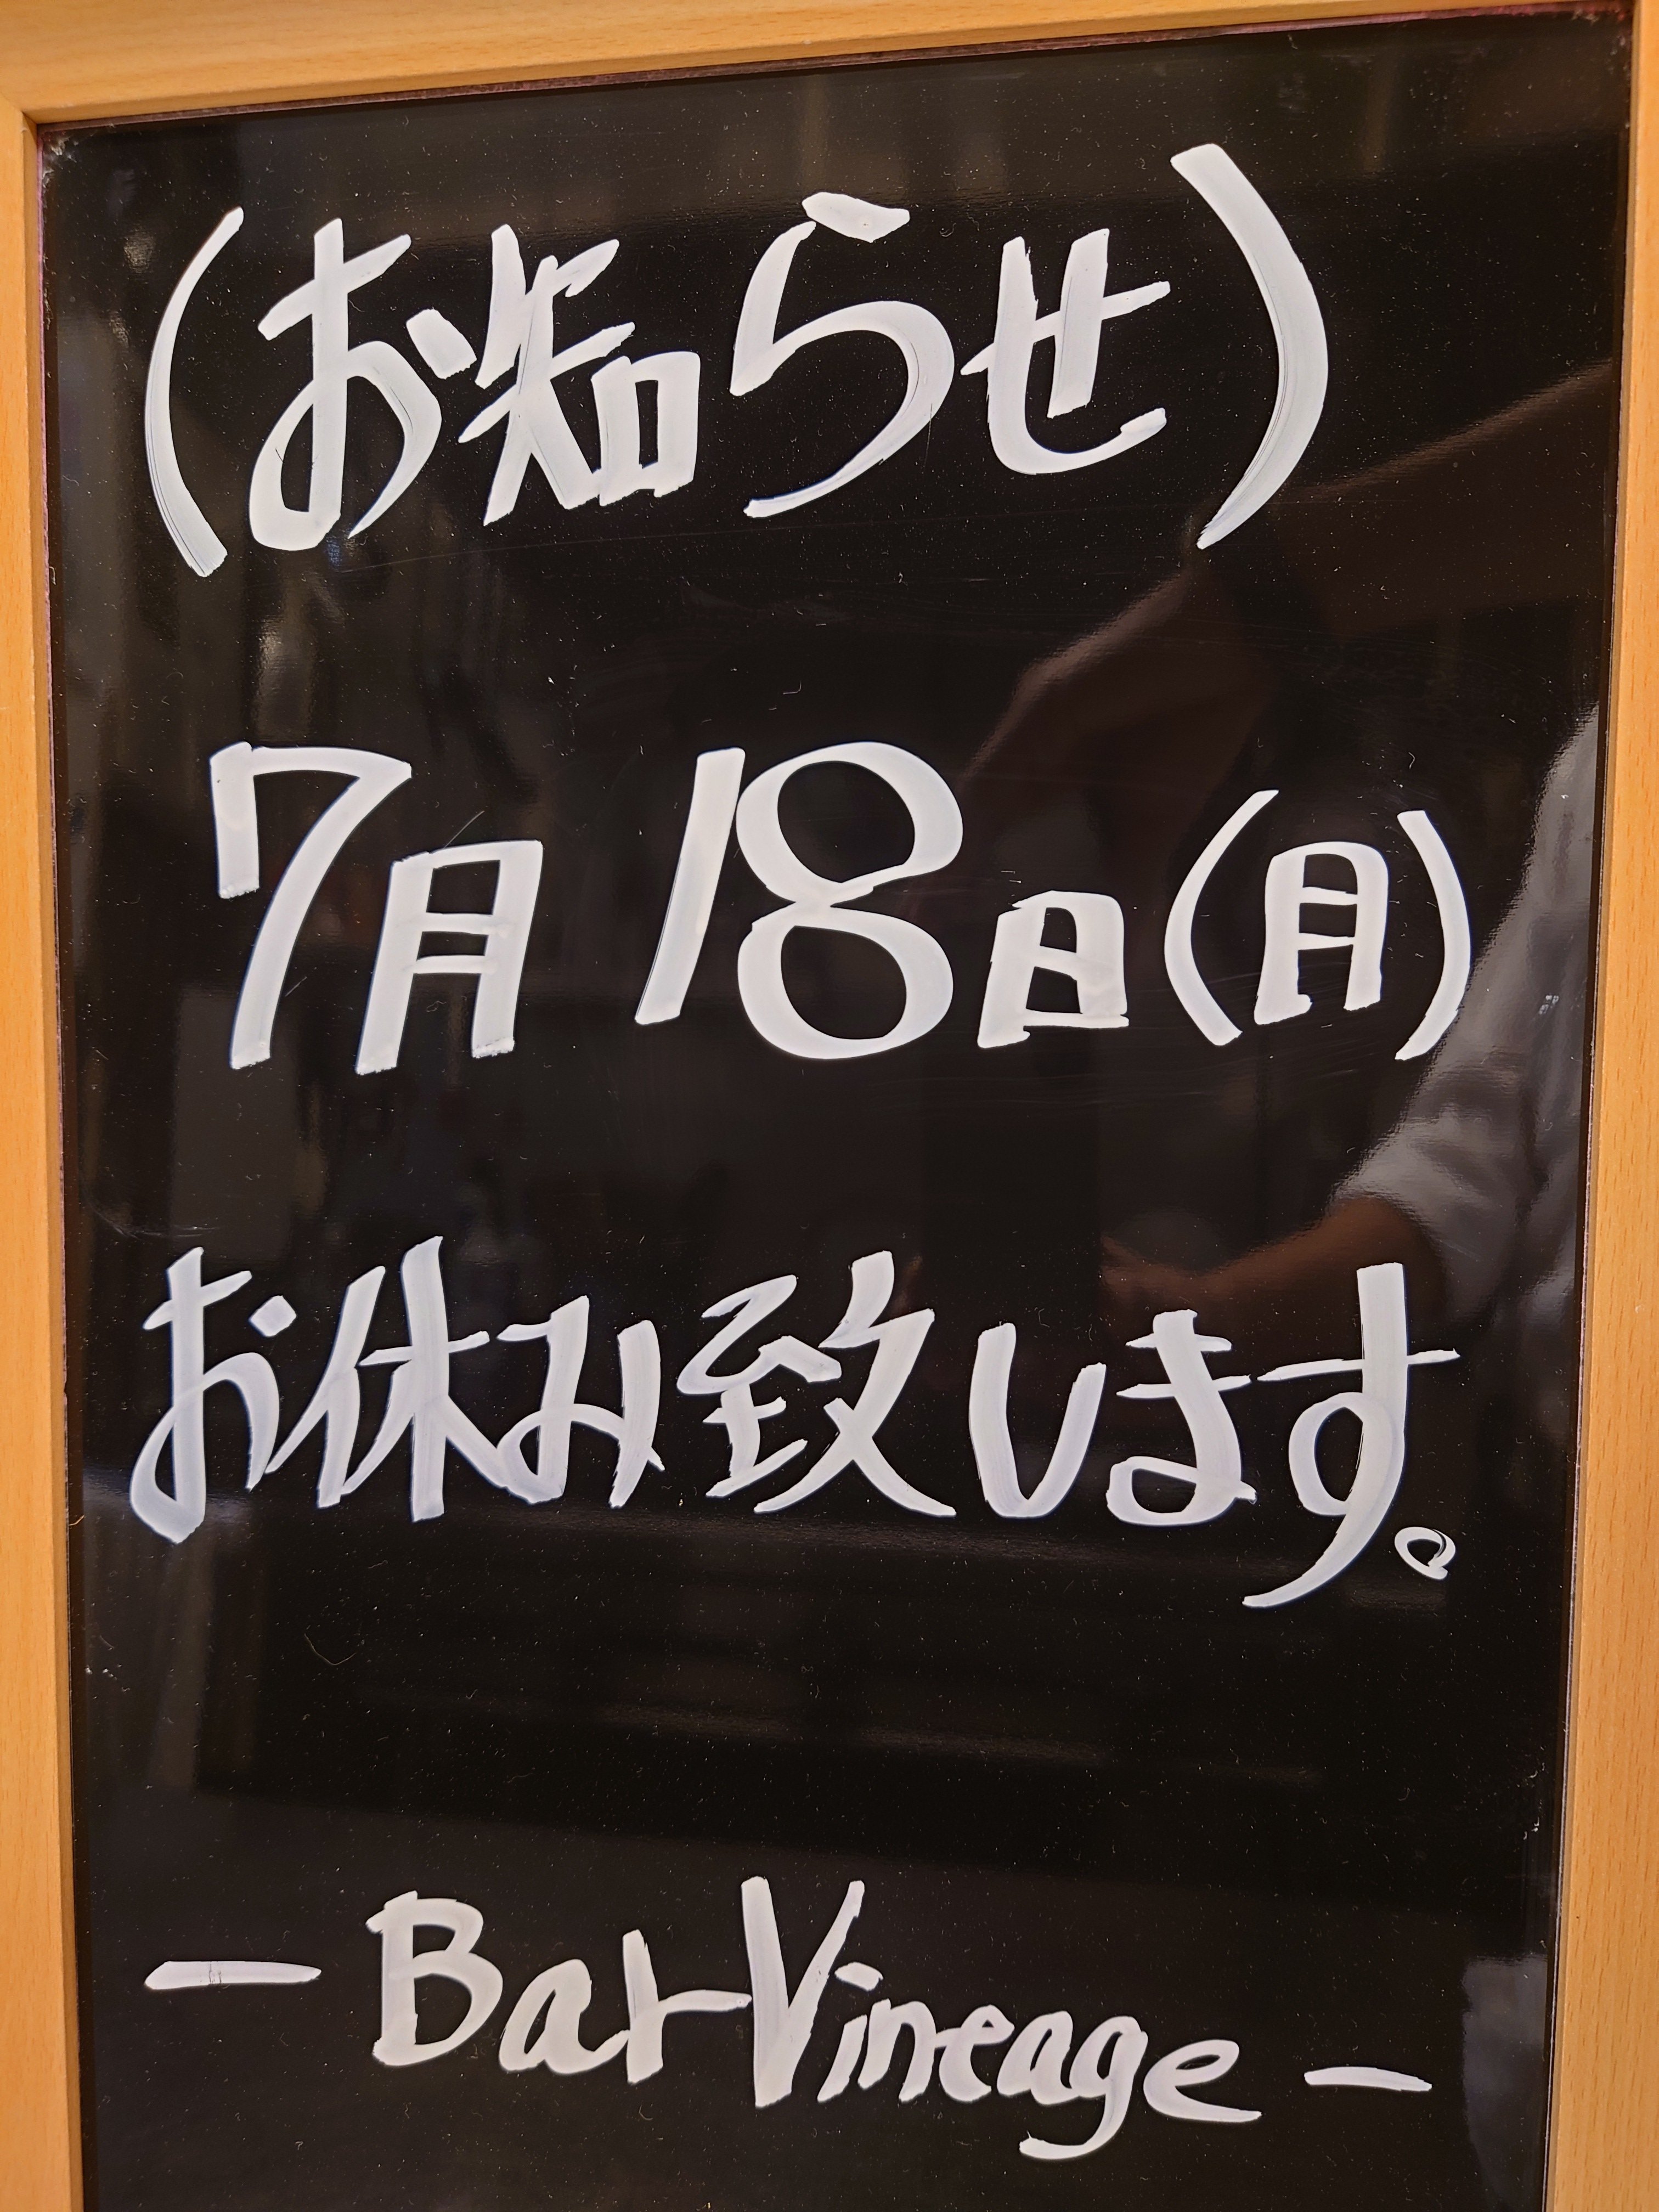 (お知らせ)
7月18日(月)
お休み致します。
- Bar Vineage -